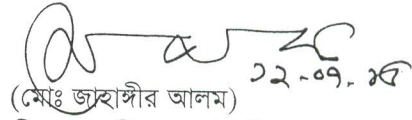 ১২-০৭-১৫
(মোঃ জাহাঙ্গীর আলম)